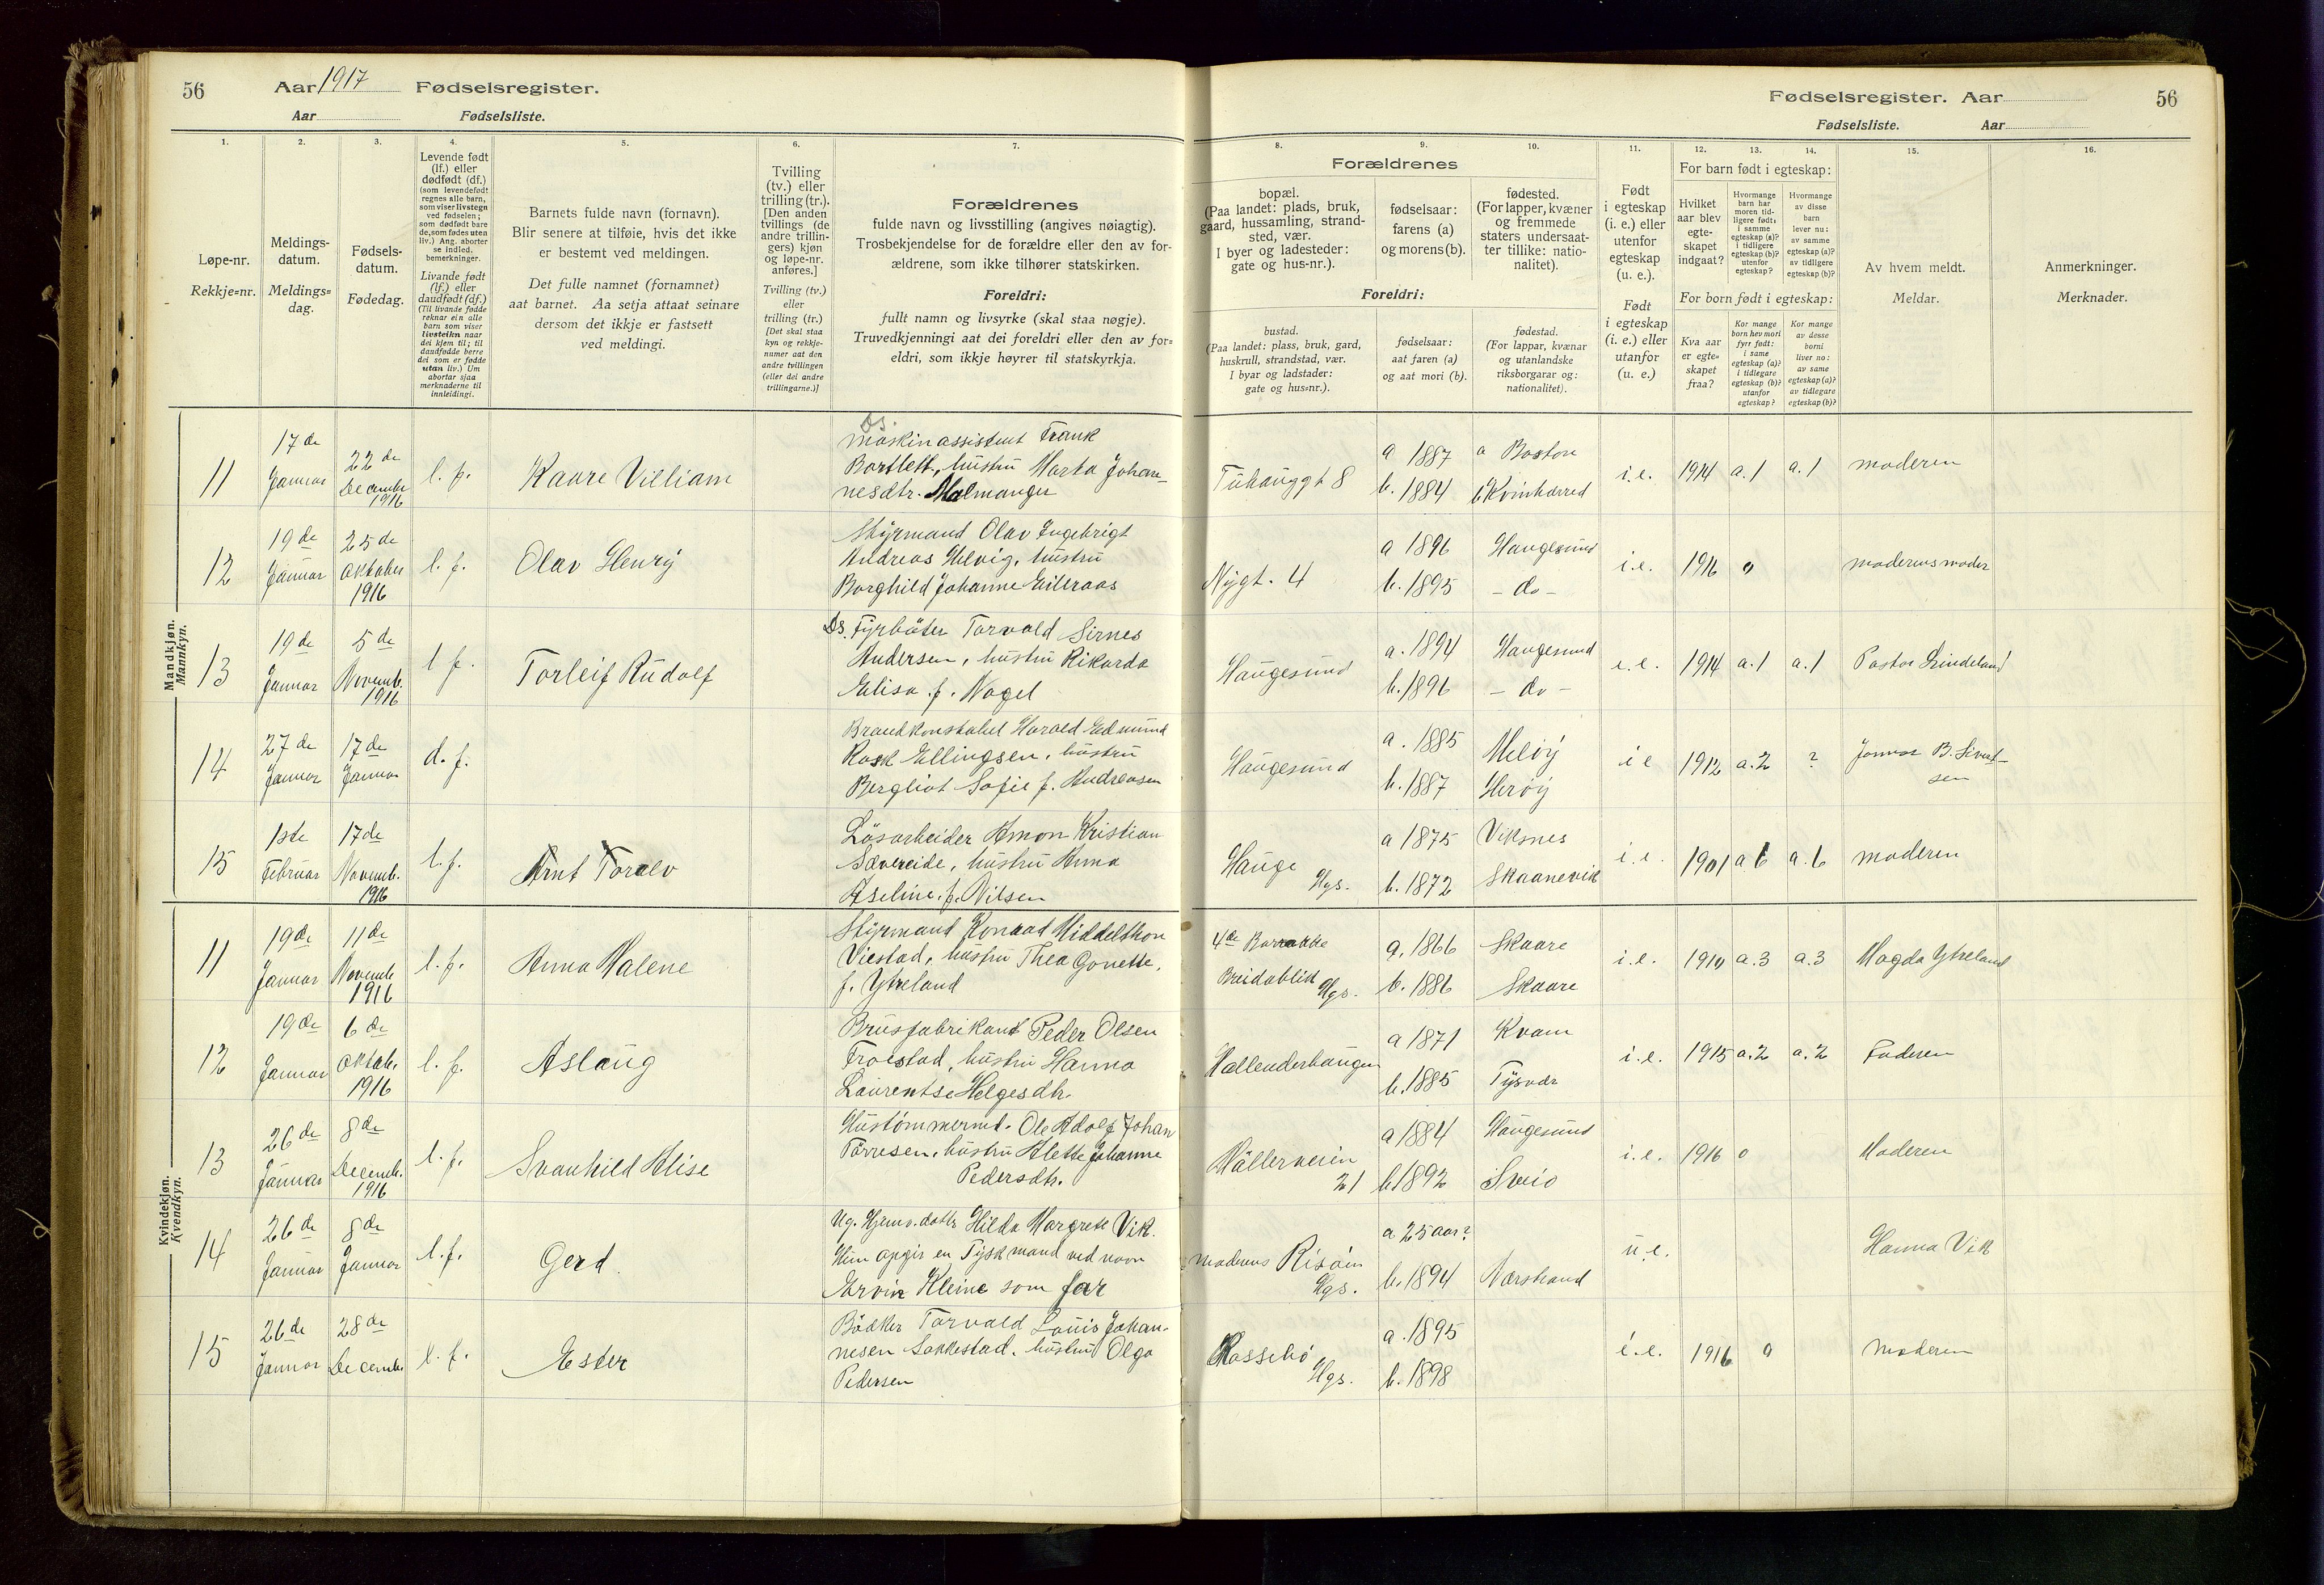 56 Aar 1917 Fødselsregister.
Aar Fødselsliste.
Fødselsregister. Aar 56
Fødselsliste. Aar
1.
Løpe-nr.
Rekkje=nr.
2.
Meldings-
datum.
Meldings=
dag.
3.
Fødsels-
datum.
Fødedag.
4.
Levende født
(lf.) eller
dødfødt (df.)
(som levendefødt
regnes alle barn,
som viser livstegn
ved fødselen;
som dødfødt bare
de, som fødes uten
liv.) Ang. aborter
se indled.
bemerkninger.
Livande født
(lf.) eller
daudfødt (df.)
(Til livande fødde
reknar ein alle
barn som viser
livsteikn naar
dei kjem til; til
daudfødde berre
dei som er fødde
utan liv.) Um
abortar sjaa
merknaderne til
innleidingi.
5.
Barnets fulde navn (fornavn).
Blir senere at tilføie, hvis det ikke
er bestemt ved meldingen.
Det fulle namnet (fornamnet)
aat barnet. Aa setja attaat seinare
dersom det ikkje er fastsett
ved meldingi.
6.
Tvilling
(tv.) eller
trilling (tr.).
[Den anden
tvillings (de
andre trillin-
gers) kjøn
og løpe-nr.
anføres.]
Tvilling (tv.)
eller
trilling (tr.)
[Det skal staa
kyn og rekkje-
numer aat den
andre tvillingen
(eller dei andre
trillingarne.)]
7.
Forældrenes
fulde navn og livsstilling (angives nøiagtig).
Trosbekjendelse for de forældre eller den av for-
ældrene, som ikke tilhører statskirken.
Foreldri:
fullt namn og livsyrke (skal staa nøgje).
Truvedkjenningi aat dei foreldri eller den av for=
eldri, som ikkje høyrer til statskyrkja.
Forældrenes
8.
bopæl.
(Paa landet: plads, bruk,
gaard, hussamling, strand-
sted, vær.
I byer og ladesteder:
gate og hus-nr.).
Foreldri:
bustad.
(Paa landet: plass, bruk, gard,
huskrull, strandstad, vær.
I byar og ladstader:
gate og hus=nr.).
9.
fødselsaar:
farens (a)
og morens (b).
fødselsaar:
aat faren (a)
og aat mori (b).
10.
fødested.
(For lapper, kvæner
og fremmede
staters undersaat-
ter tillike: natio-
nalitet).
fødestad.
(For lappar, kvænar
og utanlandske
riksborgarar og:
nationalitet).
11.
Født
i egteskap
(i. e.) eller
utenfor
egteskap
(u. e.).
Født
i egteskap
(i. e.) eller
utanfor
(u. e.)
For barn født i egteskap:
12.
Hvilket
aar blev
egte-
skapet
indgaat?
For born født i egteskap:
Kva aar
er egte=
skapet
fraa?
13.
Hvormange
barn har
moren tid-
ligere født:
i samme
egteskap (a)?
i tidligere
egteskap (b)?
utenfor
egteskap?
Kor mange
born hev mori
fyrr født:
i same
egteskap (a)?
i tidlegare
egteskap (b)?
utanfor
egteskap?
14.
Hvormange
av disse
barn
lever nu:
av samme
egteskap (a)?
av tidligere
egteskap (b)?
Kor mange
av desse
borni
liver no:
av same
egteskap (a)?
av tidlegare
egteskap (b)?
15.
Av hvem meldt.
Meldar.
16.
Anmerkninger.
Merknader.
Mandkjøn.
Mannkyn.
11 17de Januar 22de December 1916 l. f. Kaare Villiam
Ds.
Maskinassistent Frank
Bartlett, hustru Marta Johan-
nesdtr. Malmanger
Tuhauggt 8 a 1887 b. 1884 a Boston b Kvinherred i.e. 1914 a. 1 a. 1 moderen
12 19de Januar 25de Oktober 1916 l. f. Olav Henry
Styrmand Olav Ingebrigt
Andreas Helvig, hustru
Borghild Johanne Eileraas
Nygt. 4 a 1896 b. 1895 Haugesund - do - i.e. 1916 0 moderens moder
13 19de Januar 5de Novemb. 1916 l f. Torleif Rudolf
Ds. Fyrbøter Torvald Sirnes
Andersen, hustru Rikarda
Elisa f. Nagel
Haugesund a. 1894 b. 1896 Haugesund - do - i.e. 1914 a. 1 a. 1 Pastor Lindeland
14 27de Januar 17de Januar d. f.
Brandkonstabel Harald Edmund
Rask Ellingsen, hustru
Bergliot Sofie f. Andreasen
Haugesund a. 1885 b. 1887 Meløy Herøy i e 1912 a. 2 ? B. Sivert-
sen
15 1ste Februar 17de Novemb. 1916 l. f. Arnt Toralv
Løsarbeider Amon Kristian
Sævereide, hustru Anna
Aseline f. Nilsen
Hauge Hgs. a 1875 b. 1872 Viksnes Skaanevik i.e. 1901 a 6 a. 6 moderen
Kvindekjøn.
Kvendkyn.
11 19de Januar 11de Novemb 1916 l. f. Anna Malene
Styrmand Konrad Middelthon
Viestad, hustru Thea Gonette,
f. Ytreland
4de Barrakke
Breidablik Hgs. a. 1866 b. 1886 Skaare Skaare i.e. 1910 a. 3 a. 3 Magda Ytreland
12 19de Januar 6de Oktob. 1916 l. f. Aslaug
Brusfabrikant Peder Olsen
Frøestad, hustru Hanna
Laurentse Helgesdtr.
Hallenderhaugen a 1871 b. 1885 Kvam Tysvær i.e. 1915 a. 2 a. 2 Faderen
13 26de Januar 8de Decemb. 1916 l. f. Svanhild Elise
Hustømmermd. Ole Adolf Johan
Tørresen, hustru Alette Johanne
Pedersdtr.
Møllerveien
21 a 1884 b 1892 Haugesund Sveio i.e. 1916 0 Moderen
14 26de Januar 8de Januar l. f. Gerd
Ug. Hjemv. datter Hilda Margrete Vik.
Hun opgir en Tyskmand ved navn
Ervin Kleine som far
moderens Risøen Hgs. a 25 aar? b. 1894 Nærstrand u.e. Hanna Vik
15 26de Januar 28de Decemb. l. f. Ester
Bødker Torvald Louis Johan-
nesen Sakkestad, hustru Olga
Pedersen
Rossebø Hgs. a. 1895 b. 1898 i.e. 1916 0 Moderen